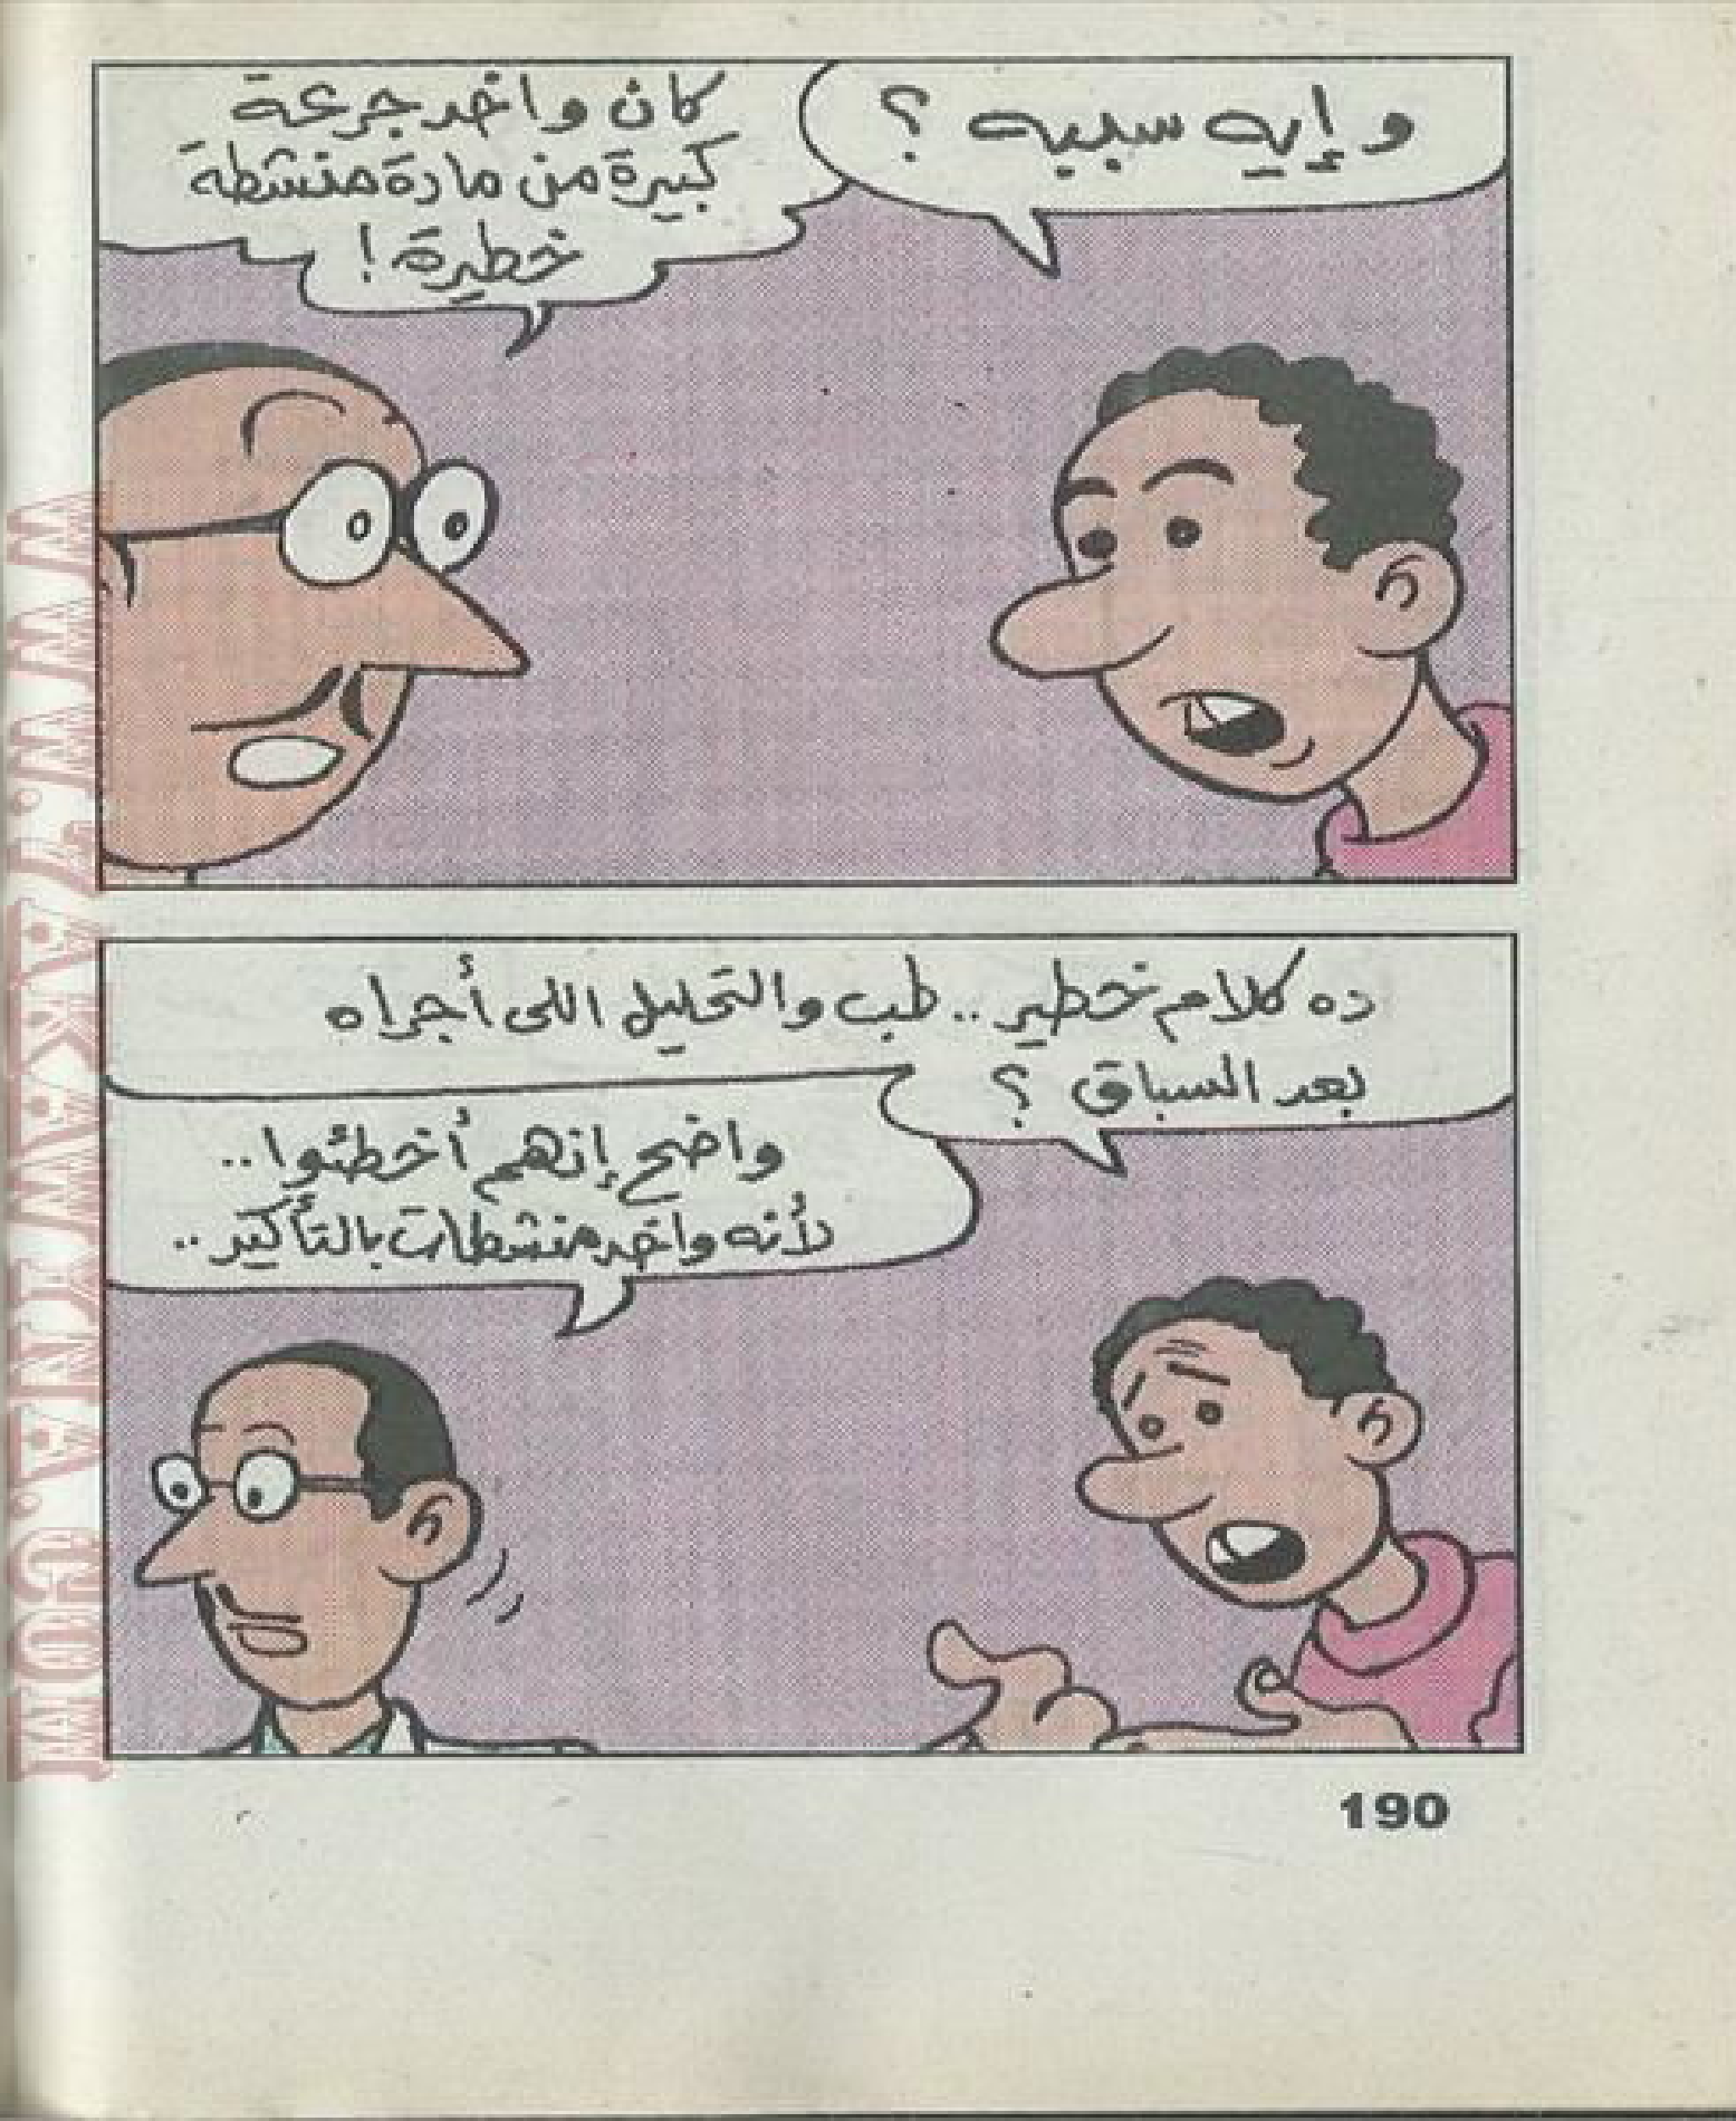 وإيه سببه ؟
كان واخد جرعة
كبيرة من مادة منشطة
خطيرة !
ده كلام خطير .. طب والتحليل اللى أجراه
بعد السباق ؟
واضح إنهم أخطئوا ..
لأنه واخد منشطات بالتأكيد ..
190
WWW.ARAKMINA.COM